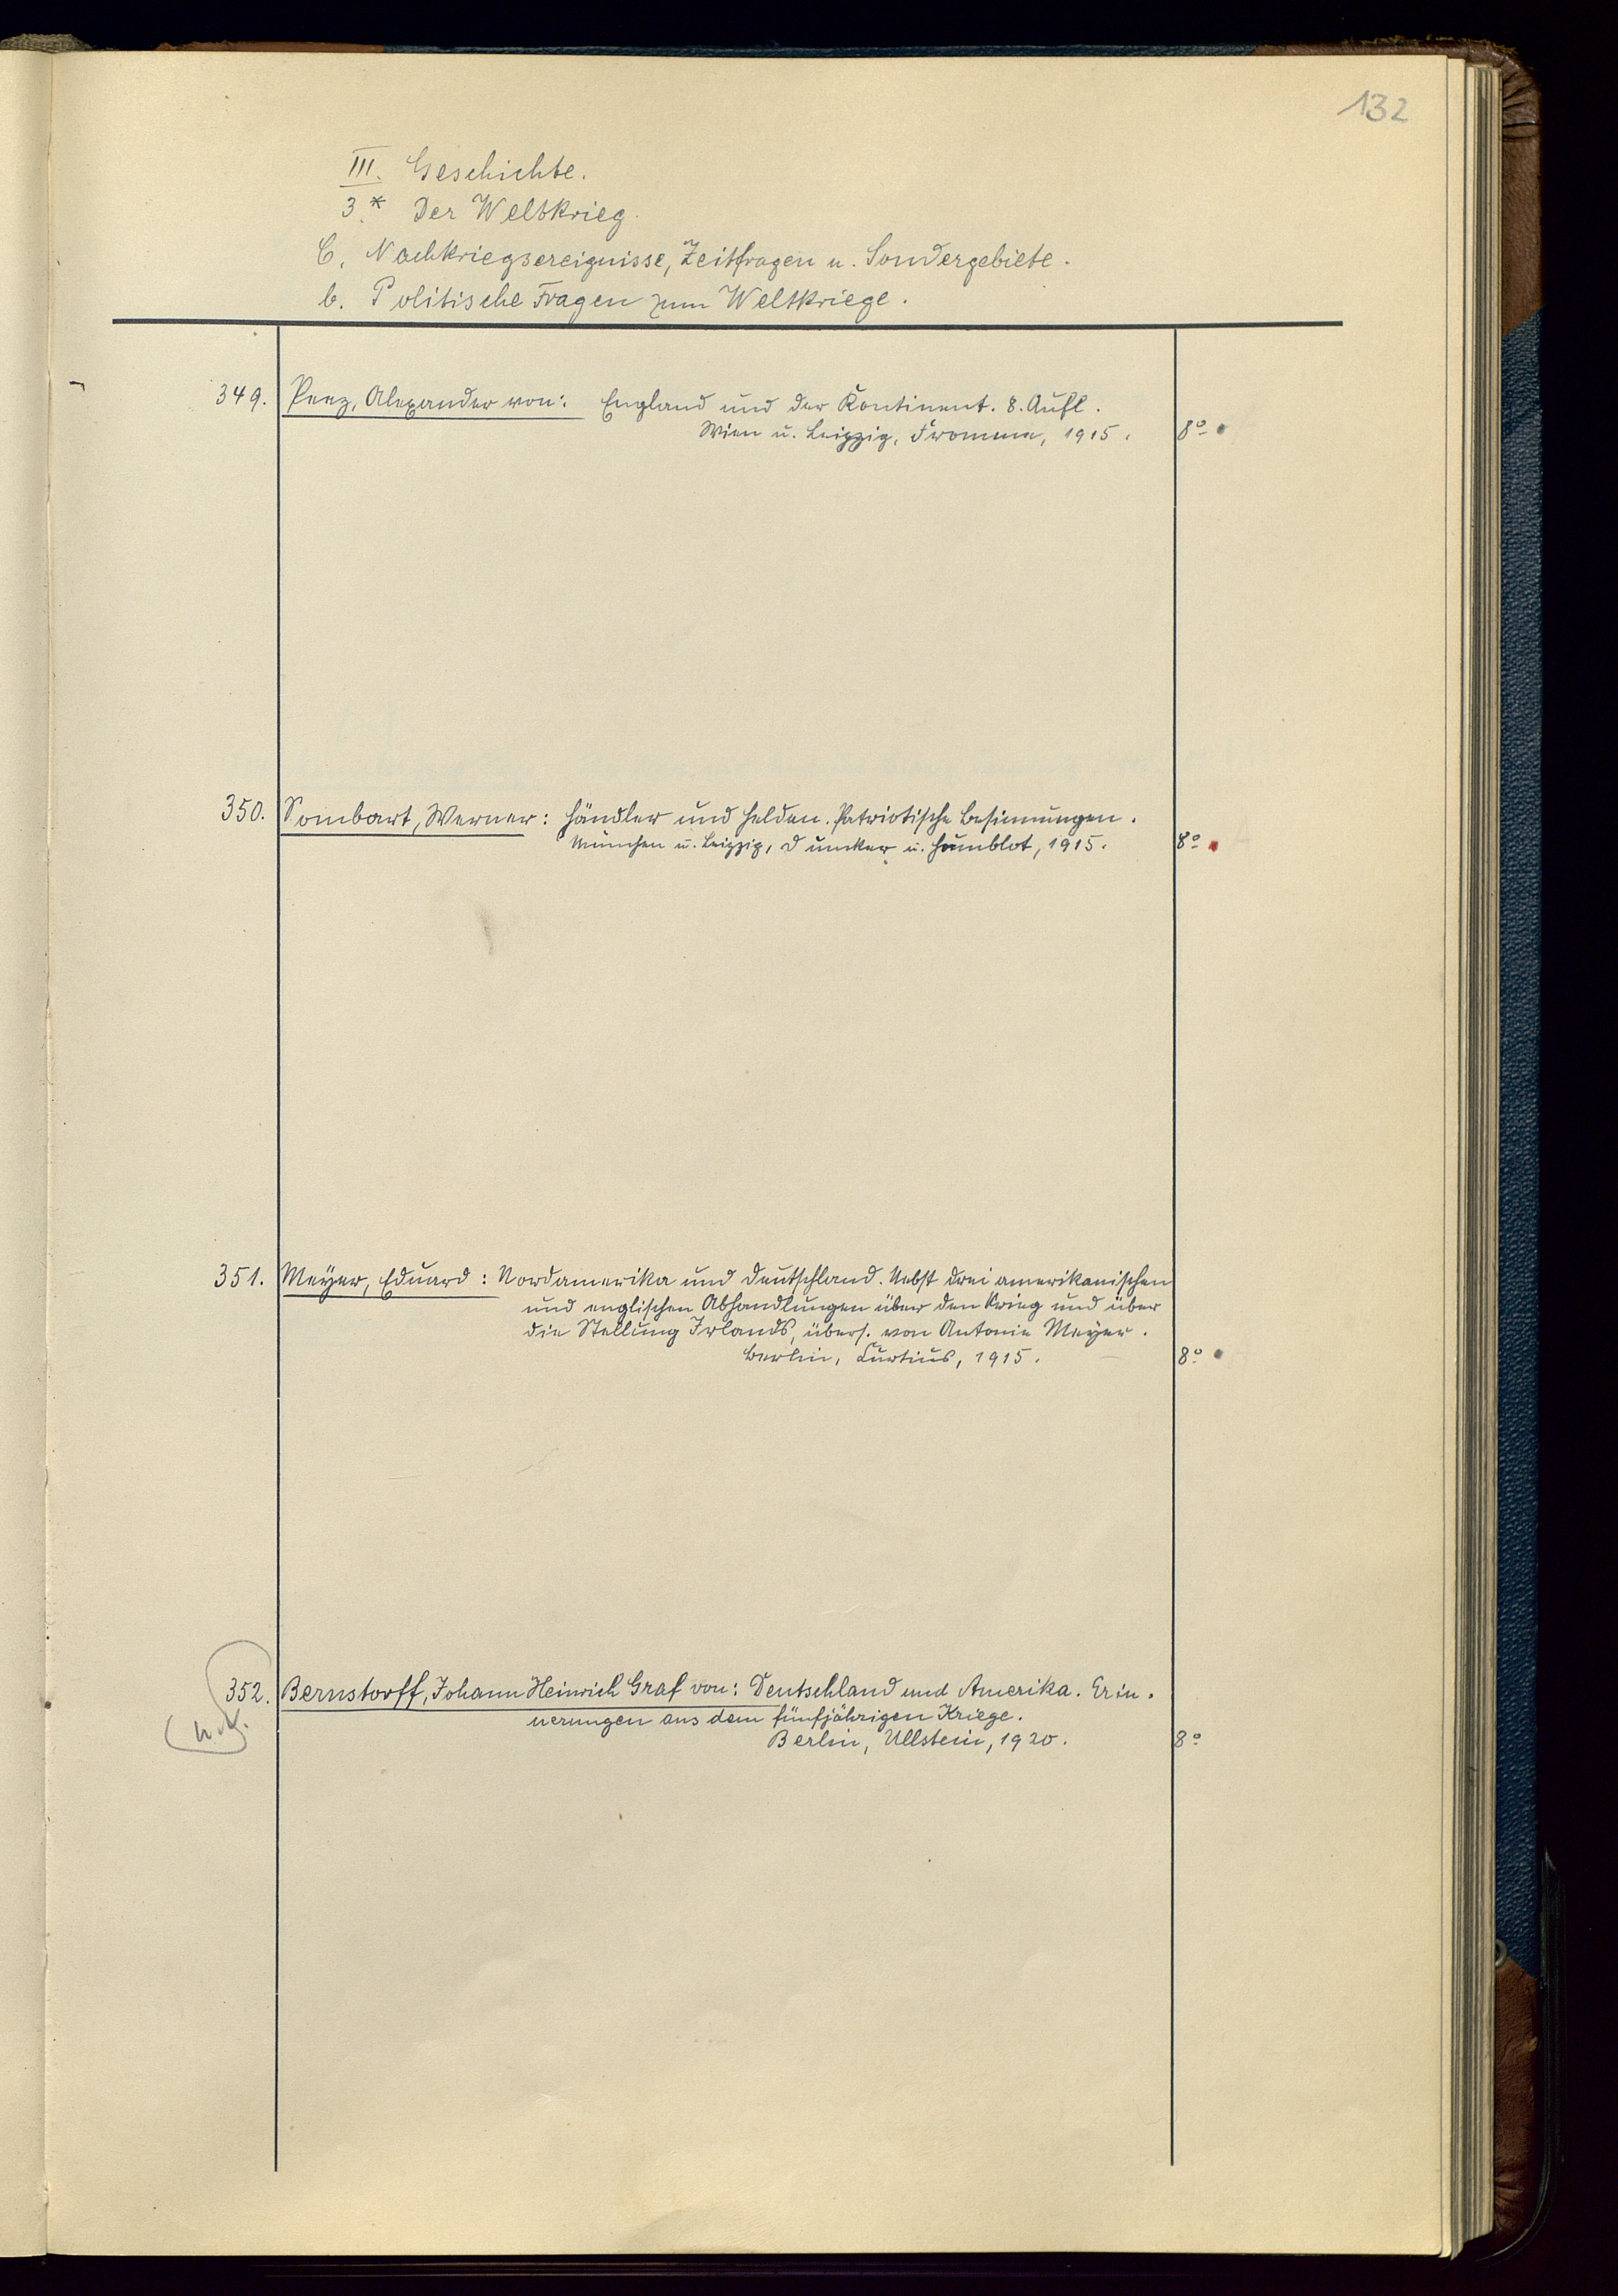 132
III. Geschichte.
3.* Der Weltkrieg.
C. Nachkriegsereignisse, Zeitfragen u. Sondergebiete.
b. Politische Fragen zum Weltkriege.
349. Peez, Alexander von: England und der Kontinent. 8. Aufl.
Wien u. Leipzig, Fromme, 1915. 8°
350. Sombart, Werner: Händler und Helden. Patriotische Besinnungen.
München u. Leipzig, Duncker u. Humblot, 1915. 8°
351. Meyer, Eduard: Nordamerika und Deutschland. Nebst drei amerikanischen
und englischen Abhandlungen über den Krieg und über
die Stellung Irlands, übers. von Antonie Meyer.
Berlin, Curtius, 1915. 8°
352. Bernstorff, Johann Heinrich Graf von: Deutschland und Amerika. Erin-
nerungen aus dem fünfjährigen Kriege.
Berlin, Ullstein, 1920. 8°